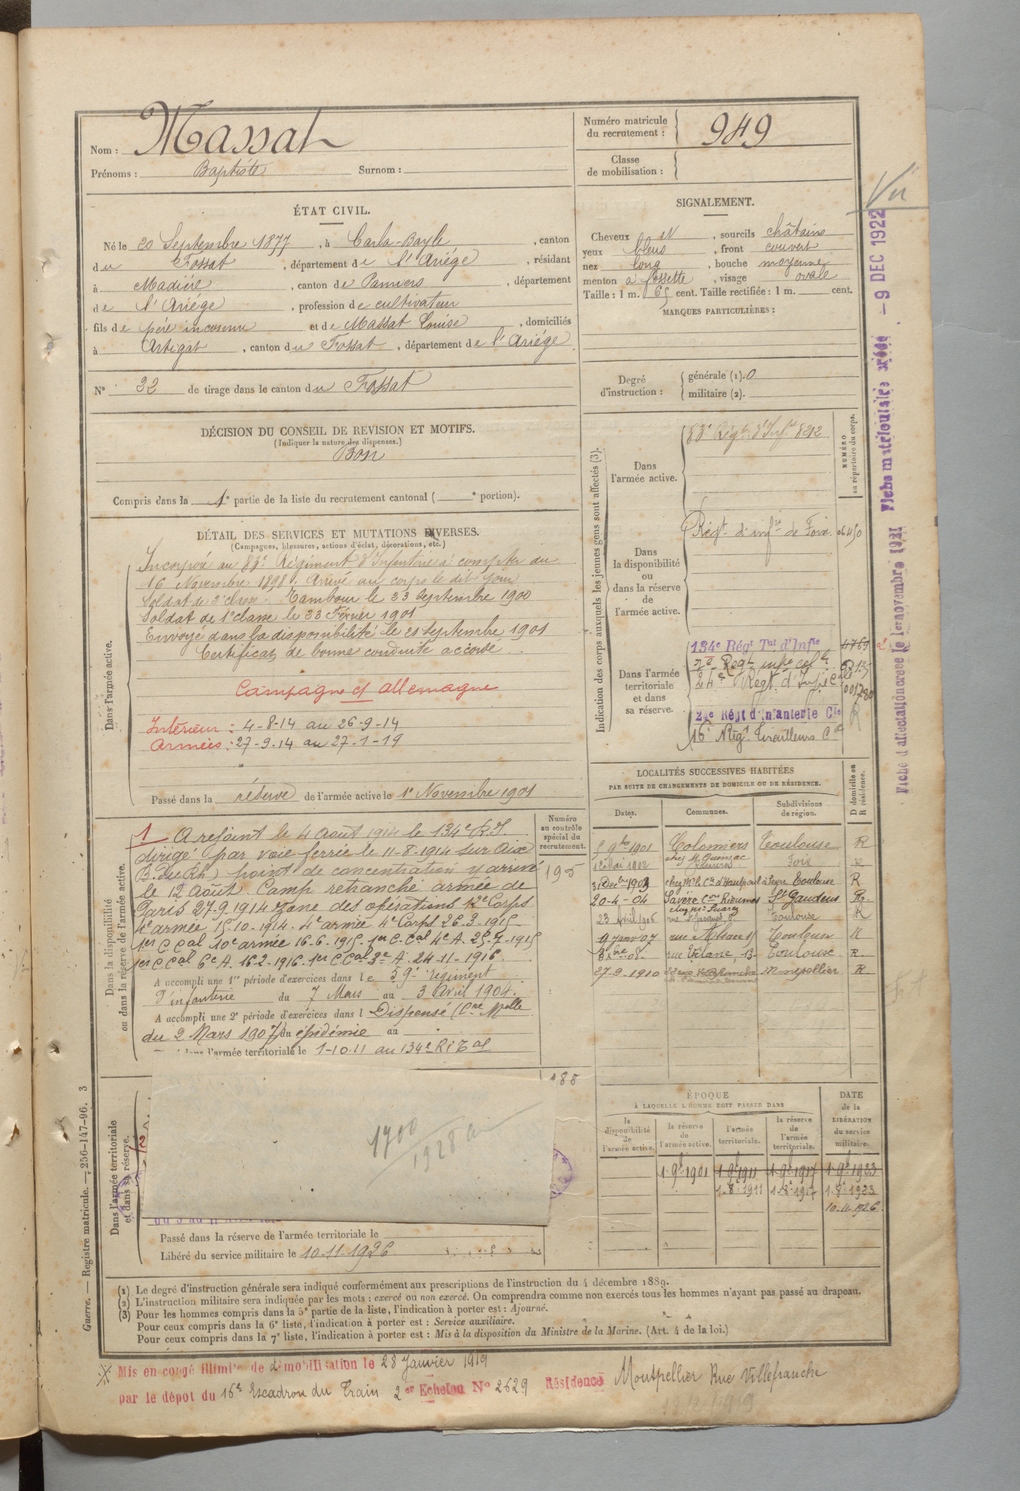 Nom : Massat
Prénoms : Baptiste Surnom :
Numéro matricule
du recrutement : 949
Classe
de mobilisation :
ÉTAT CIVIL.
Né le 20 Septembre 1877, à Carla-Bayle, canton
du Fossat, département de l'Ariège, résidant
à Madière, canton de Pamiers, département
de l'Ariège, profession de cultivateur
fils de père inconnu et de Massat Louise, domiciliés
à Artigat, canton du Fossat, département de l'Ariège
N° 32 de tirage dans le canton du Fossat
SIGNALEMENT.
Cheveux et, sourcils châtains
yeux bleus, front couvert
nez long, bouche moyenne
menton à fossette, visage ovale
Taille : 1 m. 65 cent. Taille rectifiée : 1 m. cent.
MARQUES PARTICULIÈRES :
Degré
d'instruction :
générale (1). 0
militaire (2).
DÉCISION DU CONSEIL DE REVISION ET MOTIFS.
(Indiquer la nature des dispenses.)
Bon
Compris dans la 1e partie de la liste du recrutement cantonal ( e portion).
DÉTAIL DES SERVICES ET MUTATIONS DIVERSES.
(Campagnes, blessures, actions d'éclat, décorations, etc.)
Dans l'armée active.
Incorporé au 83e Régiment d'Infanterie à compter du
16 Novembre 1898. Arrivé au corps le dit jour
Soldat de 2e classe. Tambour le 23 Septembre 1900
Soldat de 1e classe le 23 Février 1901
Envoyé dans la disponibilité le 21 Septembre 1901
Certificat de bonne conduite accordé.
Campagne ct allemagne
Intérieur : 4-8-14 au 26-9-14
Armées : 27-9-14 au 27-1-19
Passé dans la réserve de l'armée active le 1e Novembre 1901
Indication des corps auxquels les jeunes gens sont affectés (3).
NUMÉRO
au répertoire du corps.
Dans
l'armée active.
83e Régt d'Inft 8212
Dans
la disponibilité
ou
dans la réserve
de
l'armée active.
Régt d'infie de Foix
Dans l'armée
territoriale
et dans
sa réserve.
134e Régt Tal d'Infie
24e Régt d'Infie Cale
24e Régt d'Infanterie Cle
16e Régt Tirailleurs Cx
Dans la disponibilité
ou dans la réserve de l'armée active.
Numéro
au contrôle
spécial du
recrutement.
195
1 A rejoint le 4 Août 1914 le 134e R.I.
dirigé par voie ferrée le 11-8-1914 sur Aix
B. du Rh) point de concentration y arrivé
le 12 Août. Camp retranché armée de
Paris 27.9.1914 zone des opérations
4e armée 15.10.1914. 4e armée 4e Corps 26.3.1915
1er C. Cal 10e armée 16.6.1915. 1er C. Cal 4e A. 25.7.1915
1er C. Cal 6e A. 16.2.1916. 1er C Cal 3e A. 24-11-1916.
A accompli une 1re période d'exercices dans le 59e régiment
d'infanterie du 7 Mars au 3 Avril 1904.
A accompli une 2e période d'exercices dans l Dispensé (Cre Mlle
du 2 Mars 1907) du épidémie au
l'armée territoriale le 1-10.11 au 134e RI Tal
LOCALITÉS SUCCESSIVES HABITÉES
PAR SUITE DE CHANGEMENTS DE DOMICILE OU DE RÉSIDENCE.
Dates. Communes. Subdivisions
de région. D domicile ou
R résidence.
9bre 1901 Colomiers Toulouse R
Foix
31 Déc. 1903 Toulouse R
20-4-04 St Gaudens R
Toulouse R
9 janv 07 Toulon R
rue 13 Toulouse R
27-9-1910 Montpellier R
ÉPOQUE
À LAQUELLE L'HOMME DOIT PASSER DANS
la
disponibilité
de
l'armée active.
la réserve
de
l'armée active.
l'armée
territoriale.
la réserve
de
l'armée
territoriale.
DATE
de la
LIBÉRATION
du service
militaire.
1 9e 1901 1 9e 1911 1 9e 1917 1 9e 1923
1.8e 1911 1.8e 1917 1.8e 1923
10.11.1926
Dans l'armée territoriale
et dans sa réserve.
188
1700
1928
Passé dans la réserve de l'armée territoriale le
Libéré du service militaire le 10-11-1926
(1) Le degré d'instruction générale sera indiqué conformément aux prescriptions de l'instruction du 4 décembre 1889.
(2) L'instruction militaire sera indiquée par les mots : exercé ou non exercé. On comprendra comme non exercés tous les hommes n'ayant pas passé au drapeau.
(3) Pour les hommes compris dans la 5e partie de la liste, l'indication à porter est : Ajourné.
Pour ceux compris dans la 6e liste, l'indication à porter est : Service auxiliaire.
Pour ceux compris dans la 7e liste, l'indication à porter est : Mis à la disposition du Ministre de la Marine. (Art. 4 de la loi.)
Mis en congé illimité de démobilisation le 28 Janvier 1919
par le dépôt du 16e Escadron du Train 2e Echelon N° 2629 Résidence Montpellier Rue Villefranche
Guerre. — Registre matricule. — 256-147-96. 3
Vu
- 9 DEC 1922
Fiche matriculaire créée
Fiche d'affectation créée le 1er novembre 1921